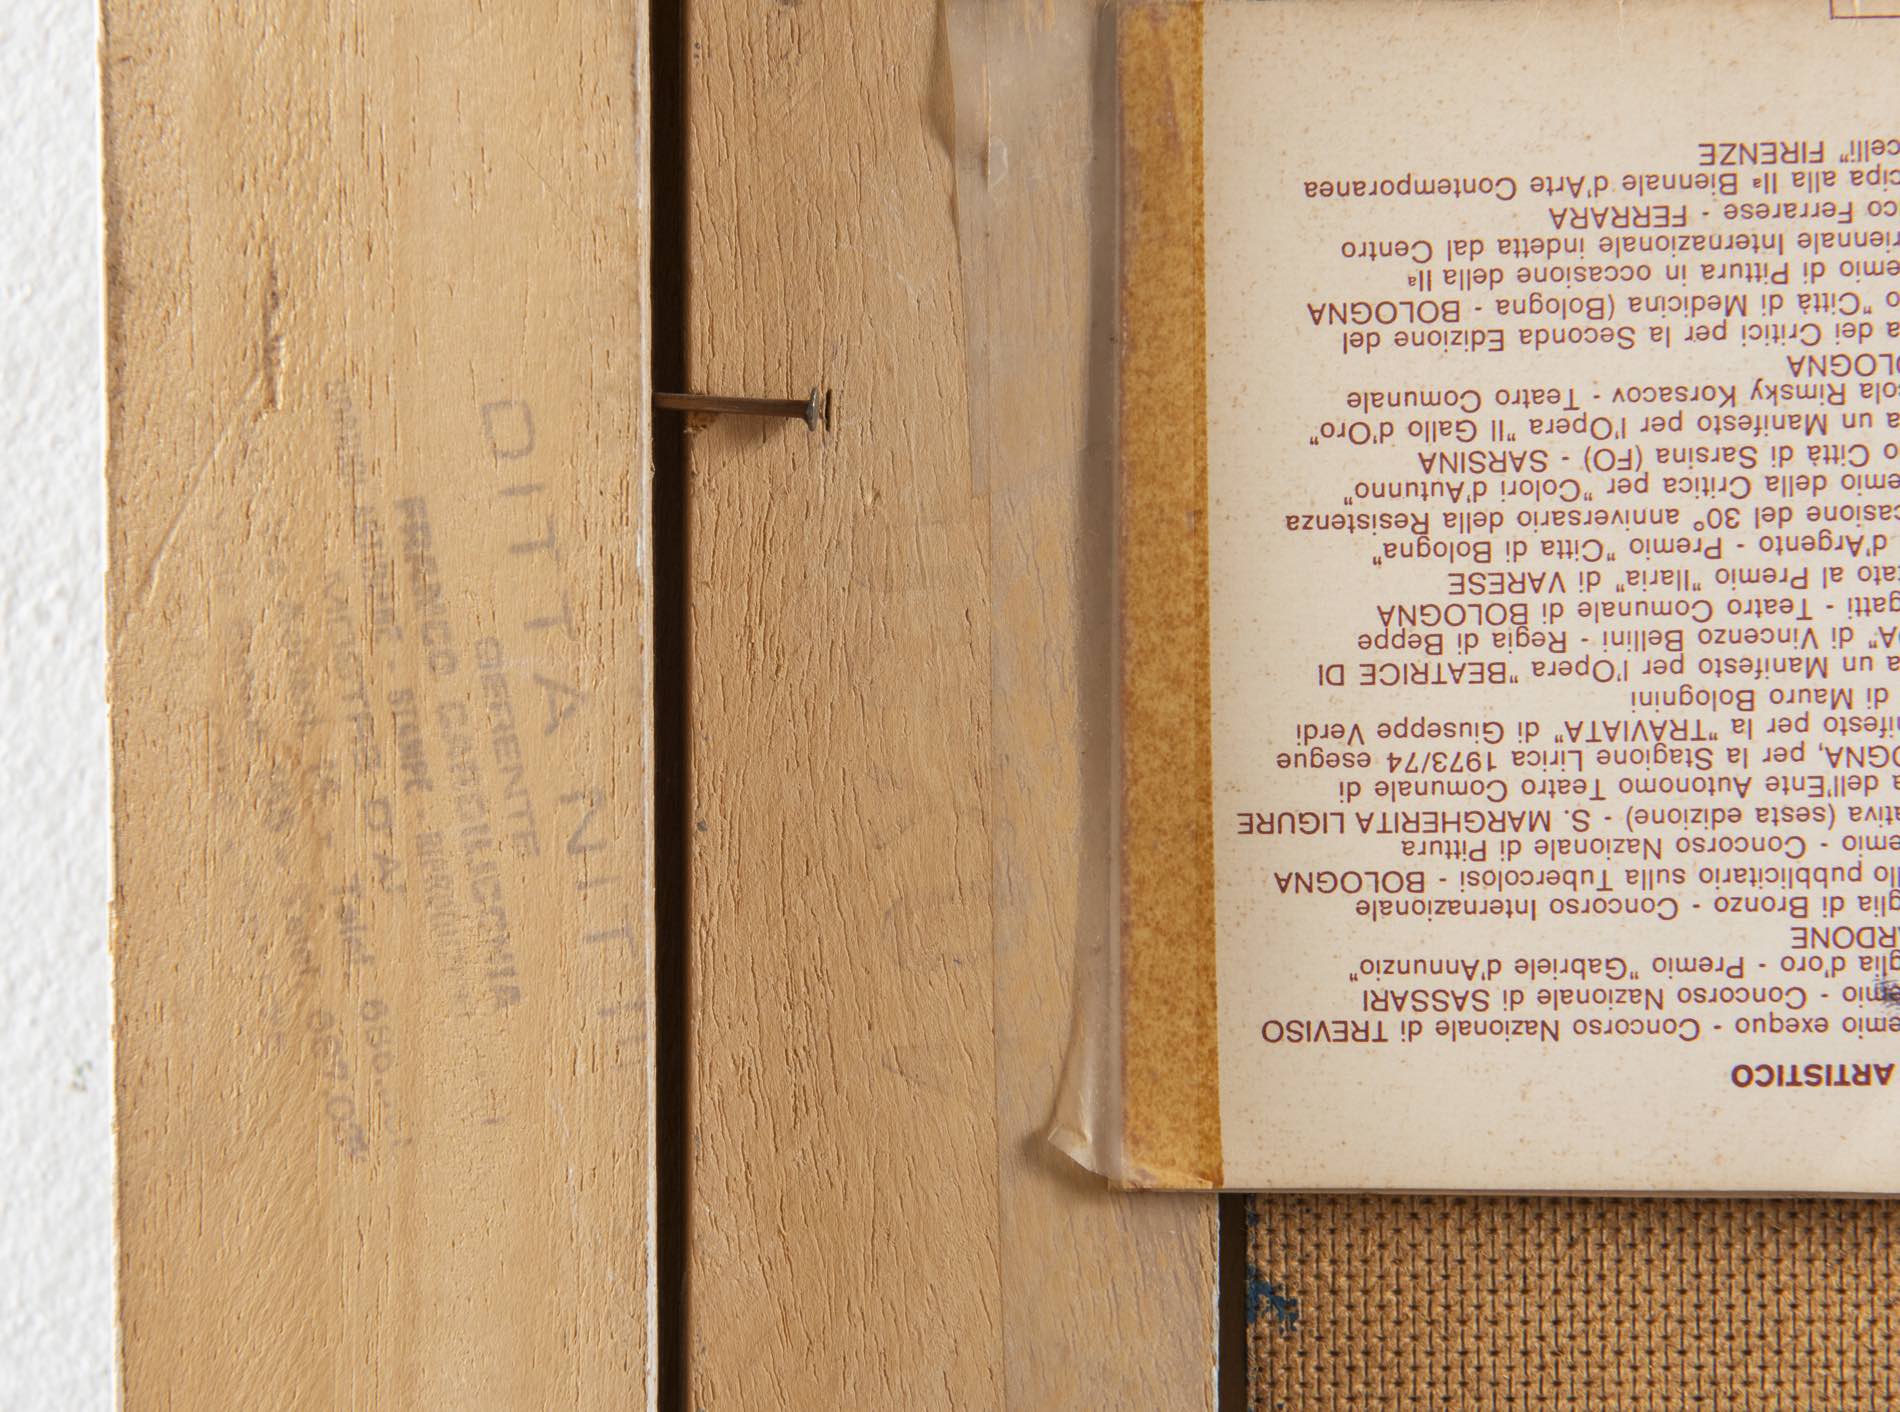 ARTISTICO
emio exequo - Concorso Nazionale di TREVISO
emio - Concorso Nazionale di SASSARI
glia d'oro - Premio "Gabriele d'Annunzio"
ARDONE
glia di Bronzo - Concorso Internazionale
llo pubblicitario sulla Tubercolosi - BOLOGNA
emio - Concorso Nazionale di Pittura
ativa (sesta edizione) - S. MARGHERITA LIGURE
a dell'Ente Autonomo Teatro Comunale di
OGNA, per la Stagione Lirica 1973/74 esegue
nifesto per la "TRAVIATA" di Giuseppe Verdi
di Mauro Bolognini
a un Manifesto per l'Opera "BEATRICE DI
DA" di Vincenzo Bellini - Regia di Beppe
gatti - Teatro Comunale di BOLOGNA
tato al Premio "Ilaria" di VARESE
d'Argento - Premio "Citta di Bologna"
casione del 30° anniversario della Resistenza
emio della Critica per "Colori d'Autunno"
o Città di Sarsina (FO) - SARSINA
a un Manifesto per l'Opera "Il Gallo d'Oro"
cola Rimsky Korsacov - Teatro Comunale
OLOGNA
a dei Critici per la Seconda Edizione del
o "Città di Medicina (Bologna - BOLOGNA
emio di Pittura in occasione della IIª
riennale Internazionale indetta dal Centro
co Ferrarese - FERRARA
cipa alla IIª Biennale d'Arte Contemporanea
celli" FIRENZE
DITTA NITTI
GERENTE
FRANCO